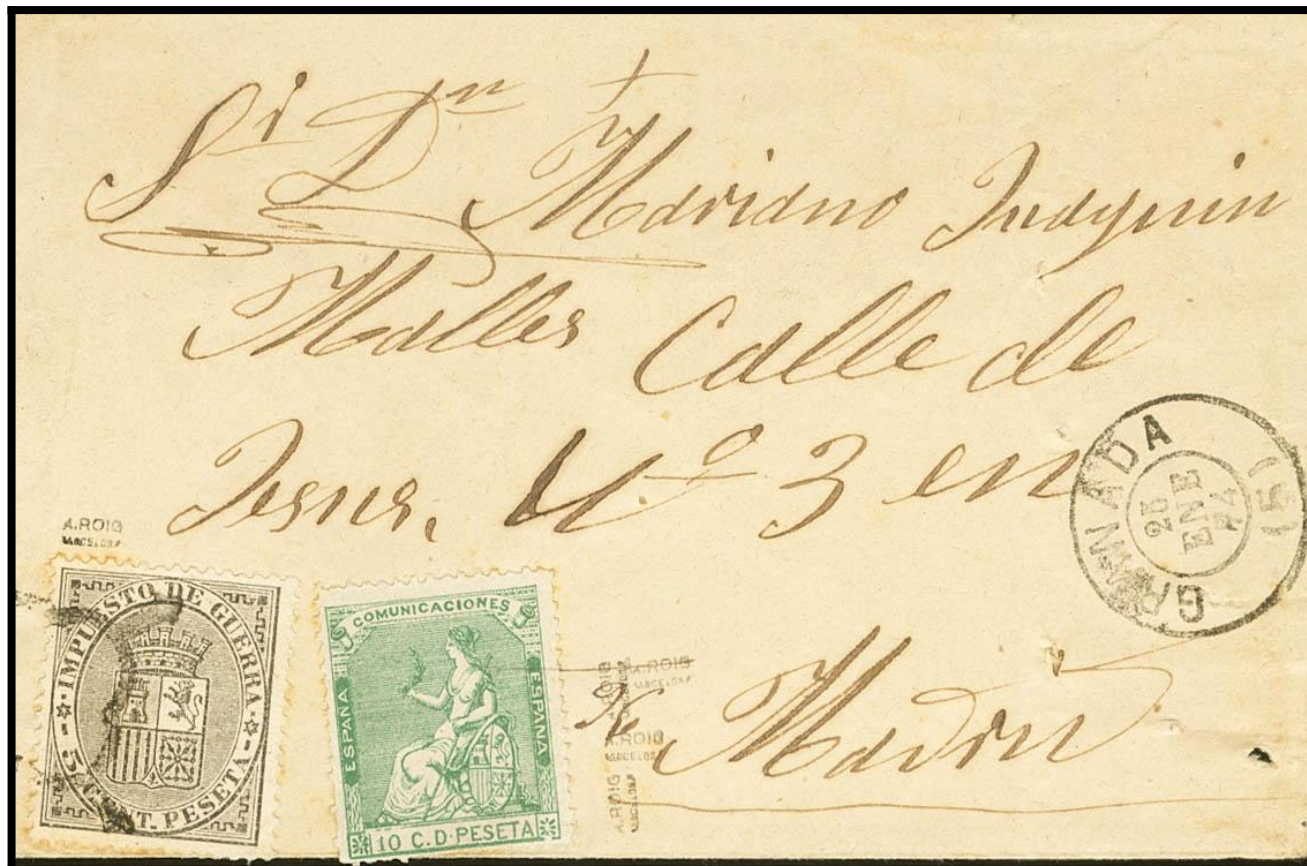 Sr Dn Mariano Juaquin
Malles Calle de
Jesus. Nº 3 en
Madrid
GRANADA
25
ENE
74
(5)
A.ROIG
BARCELONA
IMPUESTO DE GUERRA
5 CENT. PESETA
COMUNICACIONES
ESPAÑA
ESPAÑA
10 C. D PESETA
A.ROIG
BARCELONA
A.ROIG
BARCELONA
A.ROIG
BARCELONA